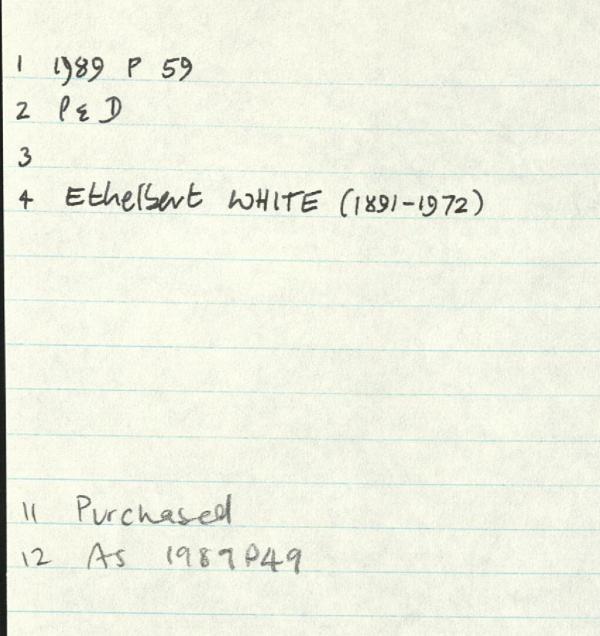 1 1989 P 59
2 P & D
3
4 Ethelbert WHITE (1891-1972)
11 Purchased
12 As 1989P49